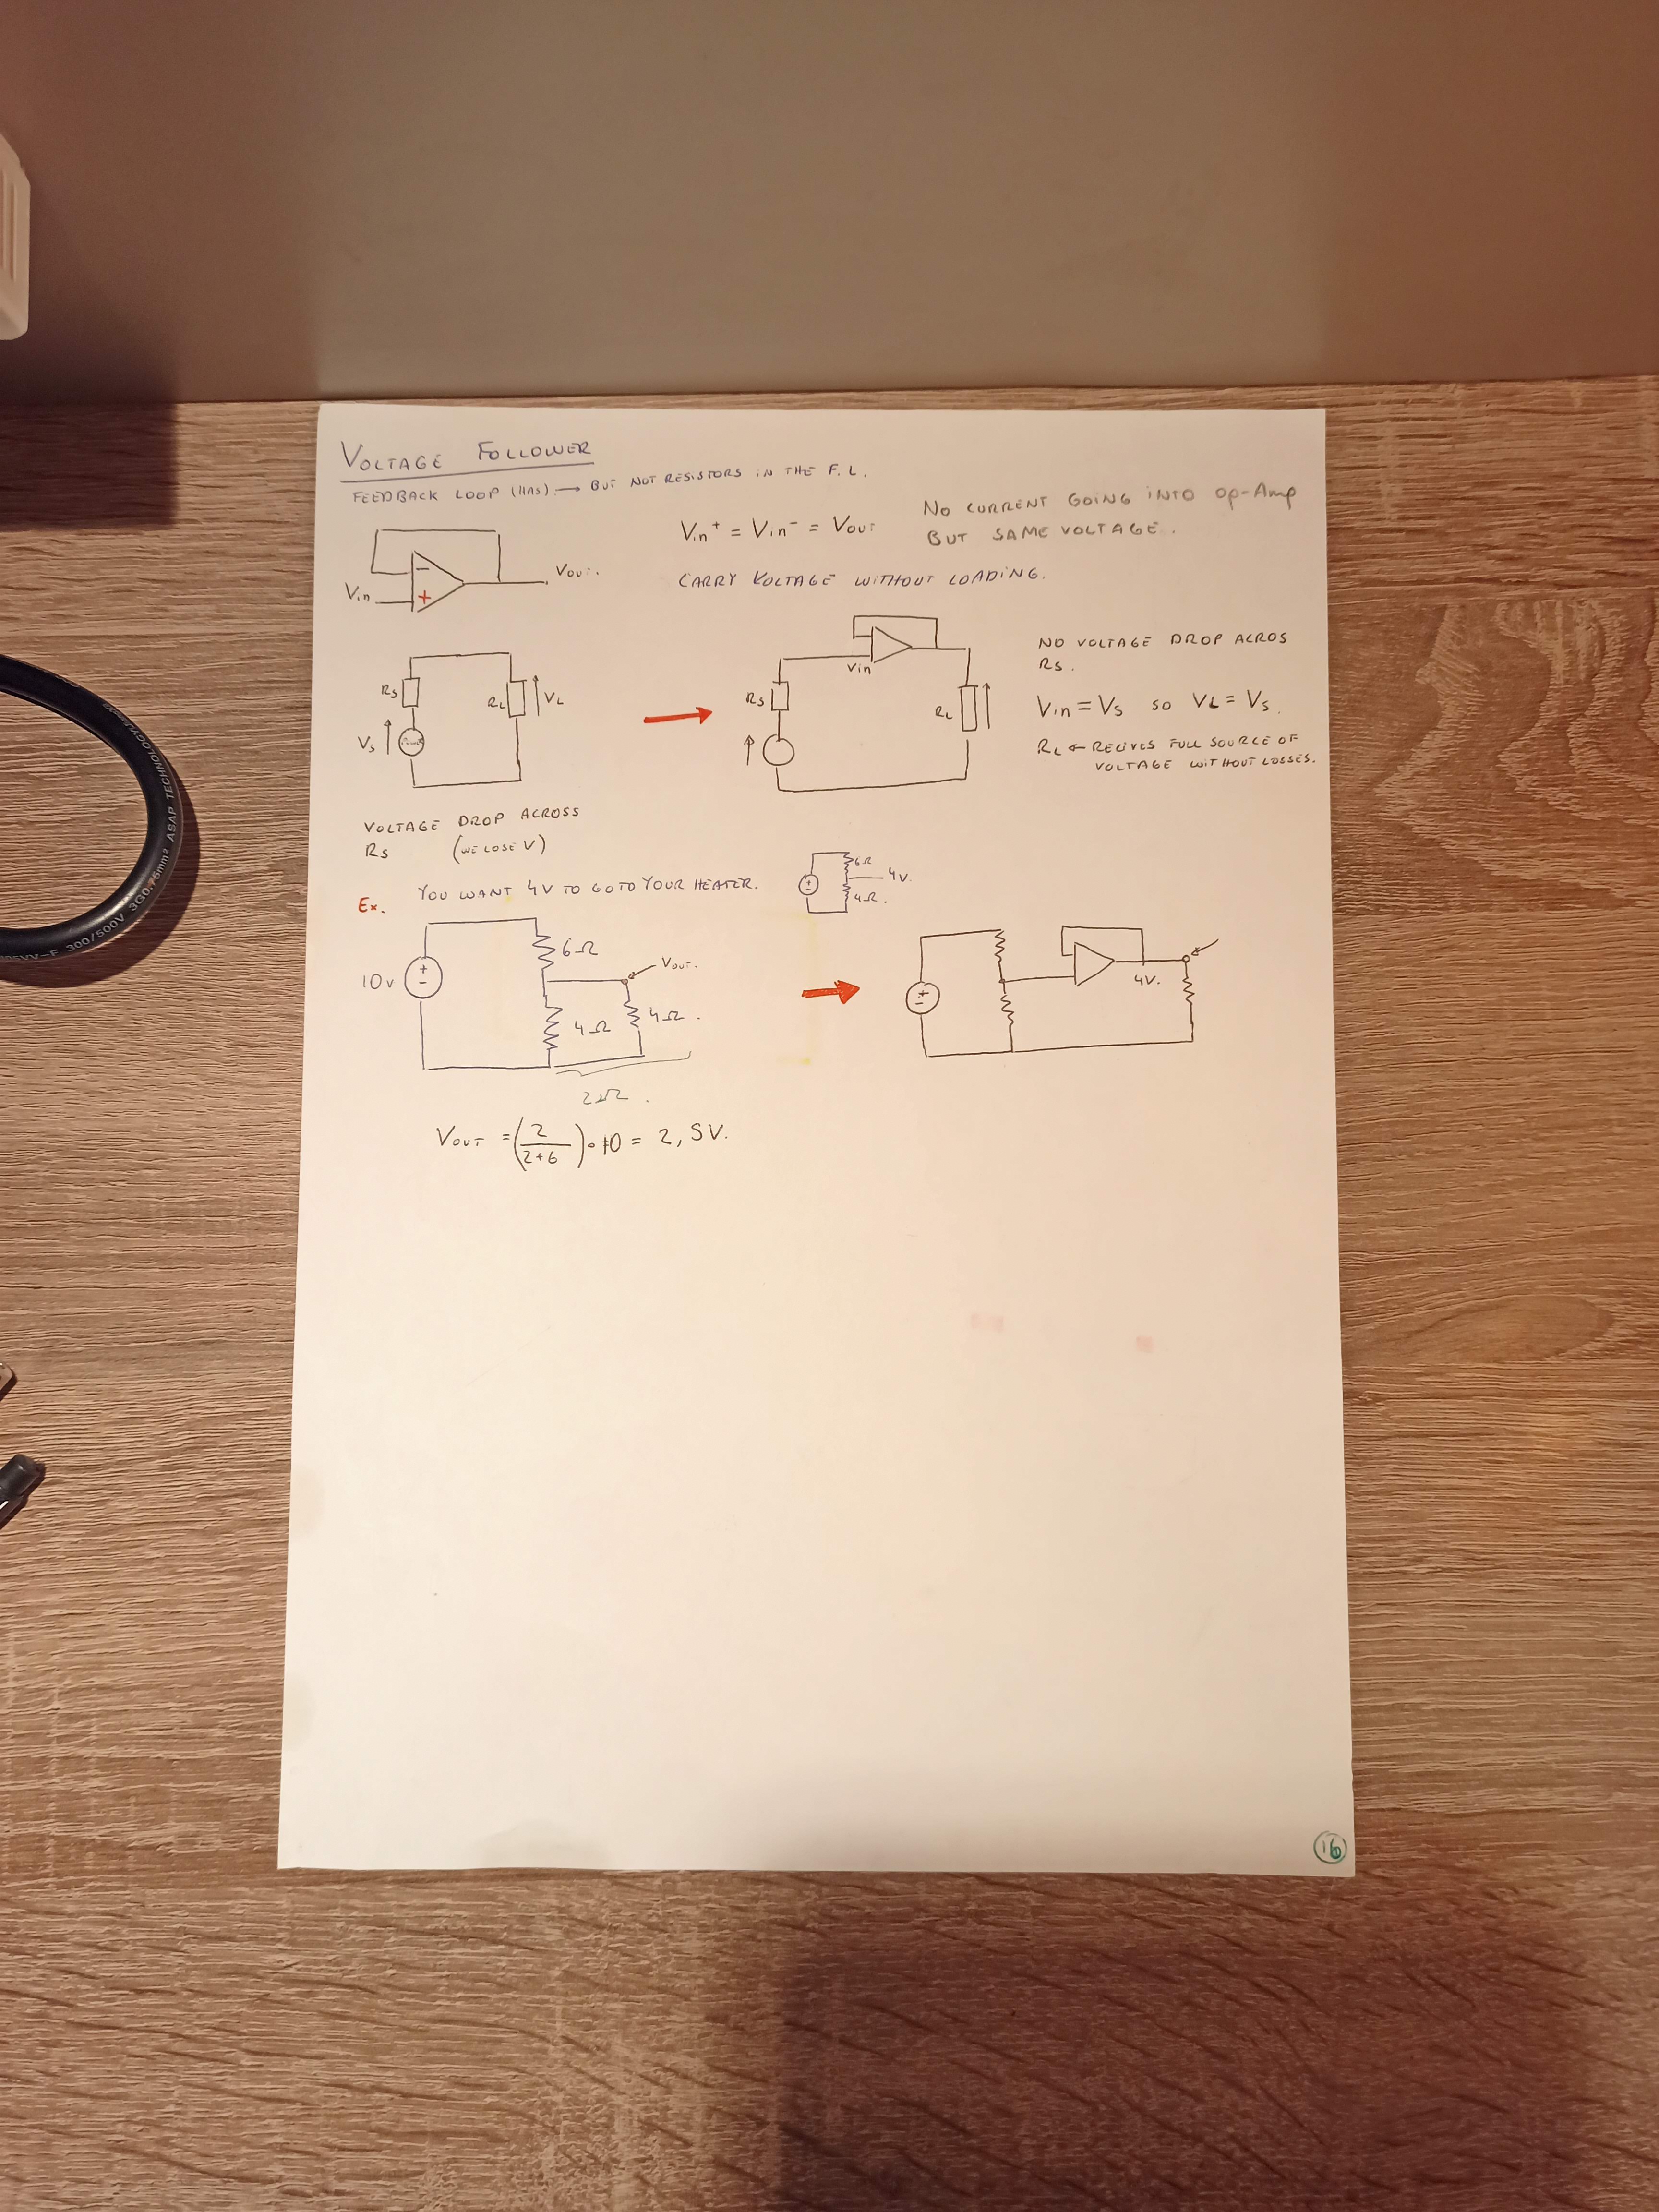 VOLTAGE FOLLOWER
FEEDBACK LOOP (HAS). → BUT NOT RESISTORS IN THE F.L.
Vin⁺ = Vin⁻ = VOUT
NO CURRENT GOING INTO OP-AMP
BUT SAME VOLTAGE.
Vin
−
+
VOUT.
CARRY VOLTAGE WITHOUT LOADING.
RS
VS
RL
VL
Vin
RS
RL
NO VOLTAGE DROP ACROS
RS.
Vin = VS SO VL = VS.
RL ← RECIVES FULL SOURCE OF
VOLTAGE WITHOUT LOSSES.
VOLTAGE DROP ACROSS
RS (WE LOSE V)
Ex. YOU WANT 4V TO GO TO YOUR HEATER.
6Ω
4V.
4Ω.
10V
+
-
6Ω
VOUT.
4Ω
4Ω.
2Ω.
+
-
4V.
VOUT = (2/2+6)∘10 = 2,5V.
16
300/500V 3G0.75mm² ASAP TECHNOLOGY